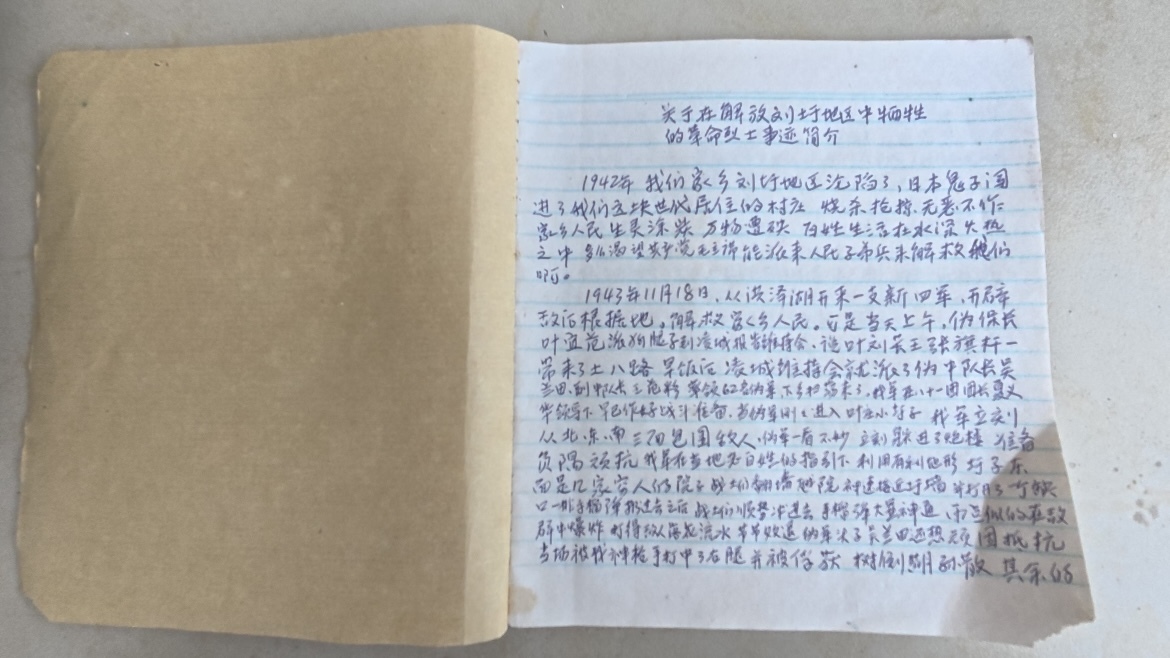 关于在解放刘圩地区中牺牲
的革命烈士事迹简介
1942年 我们家乡刘圩地区沦陷了，日本鬼子闯
进了我们这块世代居住的村庄 烧杀抢掠 无恶不作
家乡人民生灵涂炭 万物遭殃 百姓生活在水深火热
之中 多么渴望共产党毛主席能派来人民子弟兵来解救我们
啊。
1943年11月18日，从洪泽湖开来一支新四军，开辟
敌后根据地，解救家乡人民。可是当天上午，伪保长
叶宜范派狗腿子到凌城报告维持会，说叶刘吴王张旗杆一
带来了土八路 早饭后 凌城维持会就派了伪中队长吴
兰田、副中队长 率领62名伪军下乡扫荡来了，我军在八十一团团长夏
率领下 早已作好战斗准备，当伪军刚刚进入叶庄小圩子 我军立刻
从北、东、南三面包围敌人，伪军一看不妙 立刻 进了炮楼 准备
负隅顽抗 我军在当地老百姓的指引下 利用有利地形 圩子东
面是几家穷人的院子 战士们翻墙越院 神速接近圩墙 并打开了一个缺
口 一排手榴弹 过去之后 战士们顺势冲进去 手榴弹大显神通，雨点似的在敌
群中爆炸 打得敌人落花流水 节节败退 伪军头子吴兰田还想顽固抵抗
当场被我神枪手打中了右腿 并被俘获 树倒猢狲散 其余的